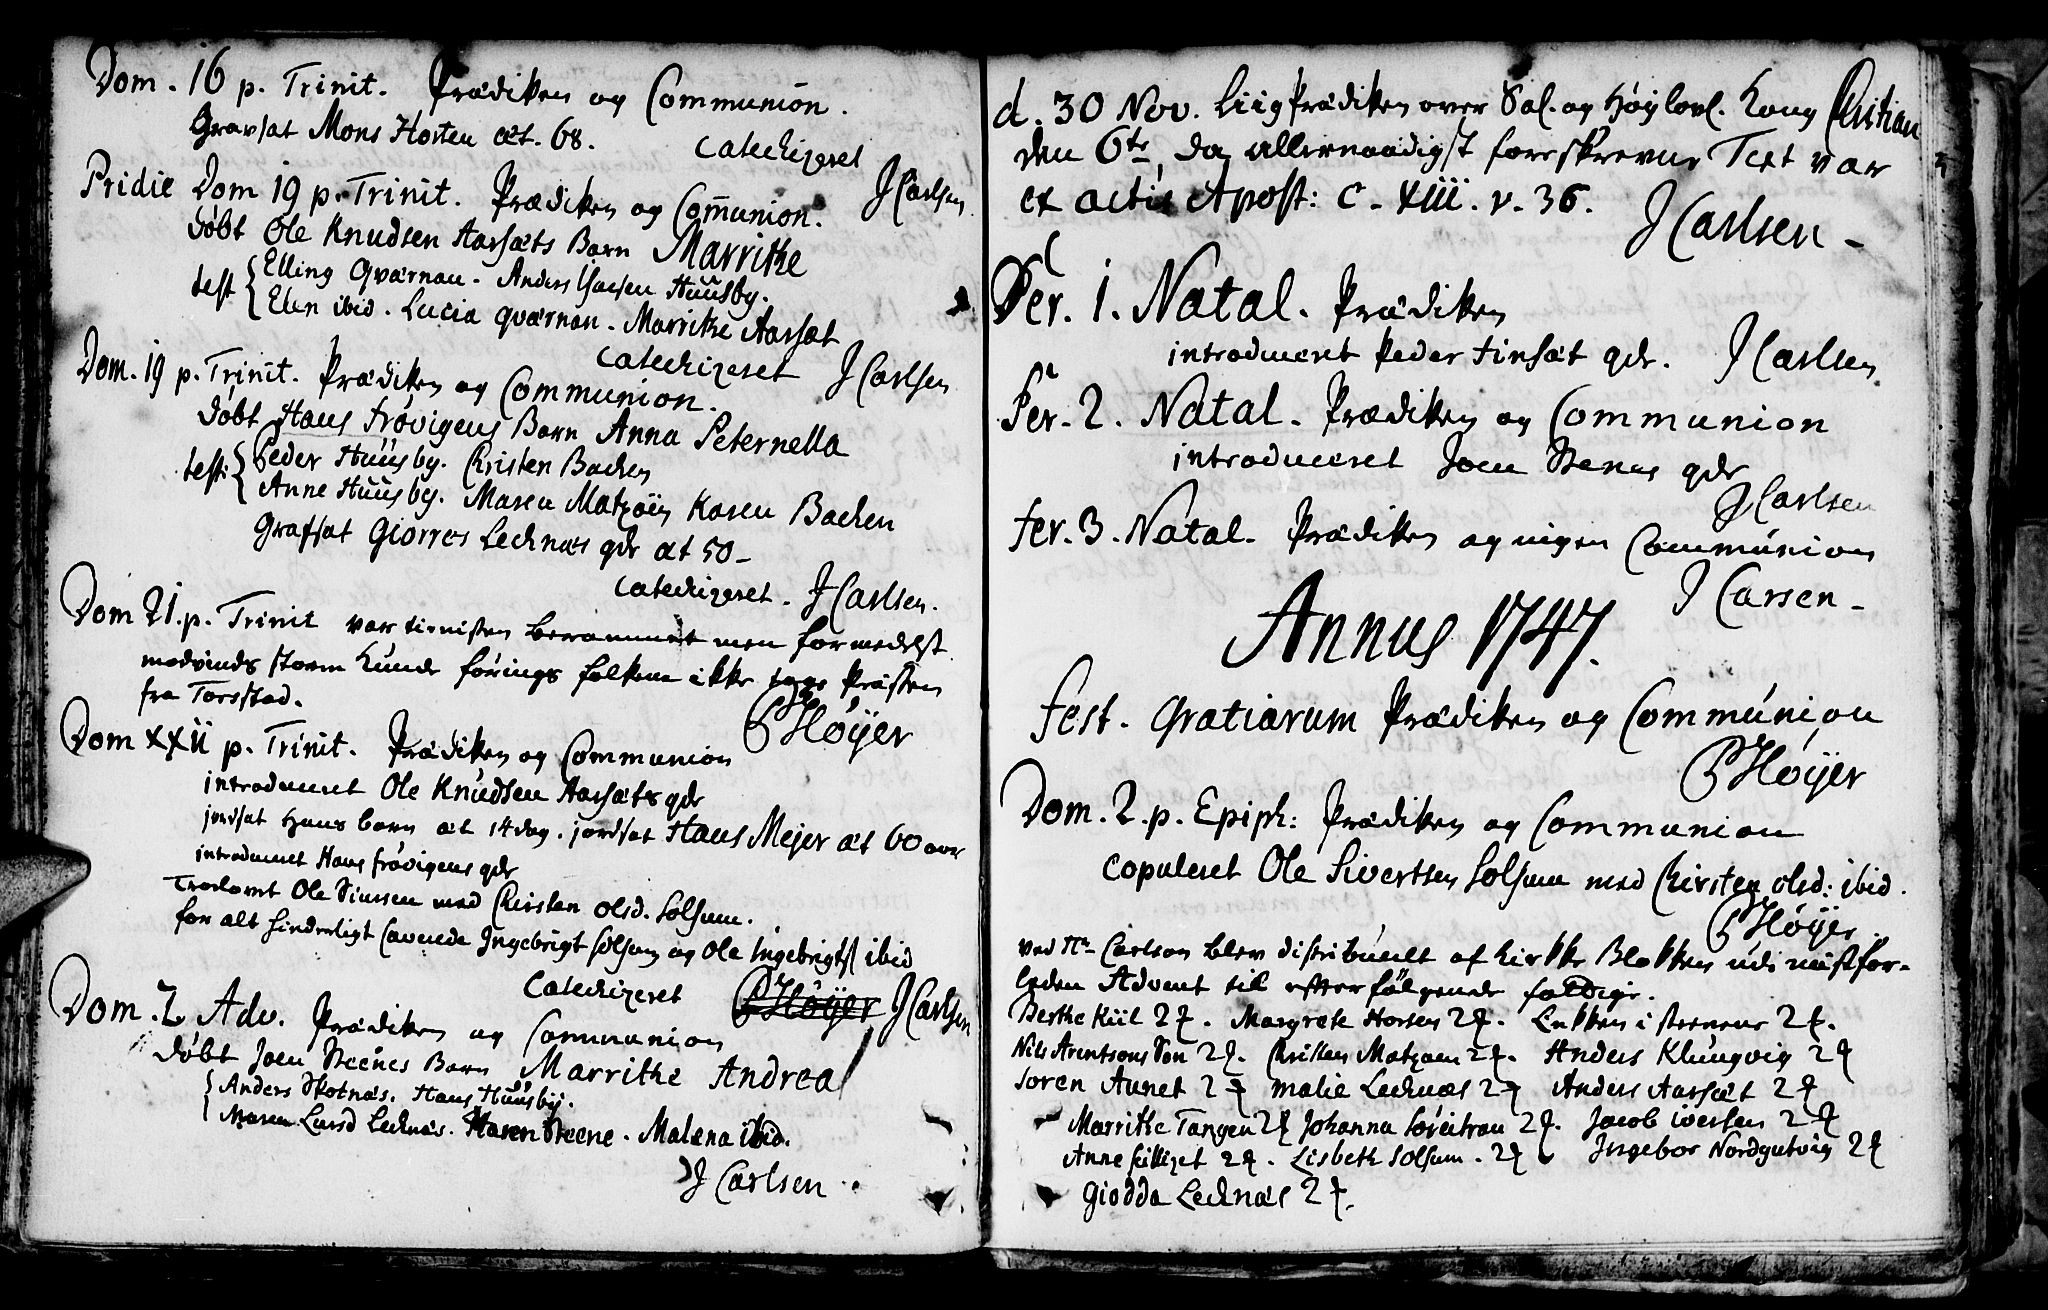 Dom. 16 p. Trinit. Prædiken og Communion.
Gravsat Mons Horsten æt. 68.
Catechizeret
J Carlsen
Pridie Dom 19 p. Trinit. Prædiken og Com̄union.
Døbt Ole Knudsen Aarsæts Barn Marrithe
test { Elling Qværnan. Anders Isacsen Huusby.
Elen ibid. Lucia qværnan. Marrithe Aarsæt
Catechizeret J Carlsen
Dom. 19 p. Trinit. Prædiken og Communion.
Døbt Hans Frøvigens Barn Anna Peternella
test: { Peder Huusby. Christen Bachen
Anne Huusby. Maren Matzøen Karen Bachen
Grafsat Giorres Lechnæs qde æt 50 -
Catechizeret. J Carlsen.
Dom 21. p. Trinit var tienisten berammet men formedelst
modvinds storm kunde førings folkene ikke tage Præsten
fra Torsstad.
P Høyer
Dom XXII p. Trinit. Prædiken og Communion
introduceret Ole Knudsen Aarsæts qde
jordsat Hans barn æt 14 dag. jordsat Hans Mejer æt 60 aar
introduceret Hans frøvigens qde
Trolovet Ole Simsen med Chirsten Olsd. Solsem.
for alt hinderligt Caverede Ingebrigt Solsem og Ole Ingebrigts ibid
Catechizeret P Høyer J Carlsen
Dom. 2 Adv. Prædiken og Communion
Døbt Joen Steenes Barn Marrithe Andrea
{ Anders Skotnæs. Hans Huusby.
Maren Larsd Lechnæs. Maren Steene. Malena ibid.
J Carlsen
d. 30 Nov. Liig Prædiken over Sal. og Høylovl. Kong Christian
den 6te, da allernaadigst foreskrevne Text var
ex actis Apost: C. XIII. v. 36.
J Carlsen -
Fer. 1. Natal. Prædiken
introduceret Peder Finsæt qde. J Carlsen
Fer. 2. Natal. Prædiken og Communion
introduceret Joen Stenes qde
J Carlsen
Fer. 3. Natal. Prædiken og ingen Communion
J Carsen -
Annus 1747.
Fest. Gratiarum Prædiken og Communion
P Høyer
Dom. 2. p. Epiph: Prædiken og Communion
Copuleret Ole Sivertsen Solsem med Chirsten Olsd: ibid.
P Høyer.
ved Hr Carlson blev distribuert af Kirke Blokken udi nestfor-
leden Advent til efterfølgende fattige.
Berthe Kiil 2 ₰. Margrete Horsen 2 ₰. Lukken i steenene 2 ₰.
Nils Arentsons Søn 2 ₰. Christen Matzøen 2 ₰. Anders Klungvig 2 ₰
Soren Aunet 2 ₰ Malie Lechnæs 2 ₰ Anders Aarsæt 2 ₰
Marrithe Tangen 2 ₰ Johanna Søreitran 2 ₰. Jacob iversen 2 ₰
Anne 2 ₰. Lisbeth Solsem. 2 ₰ Ingebor Nordgutvig 2 ₰
Giodda Lechnæs 2 ₰.